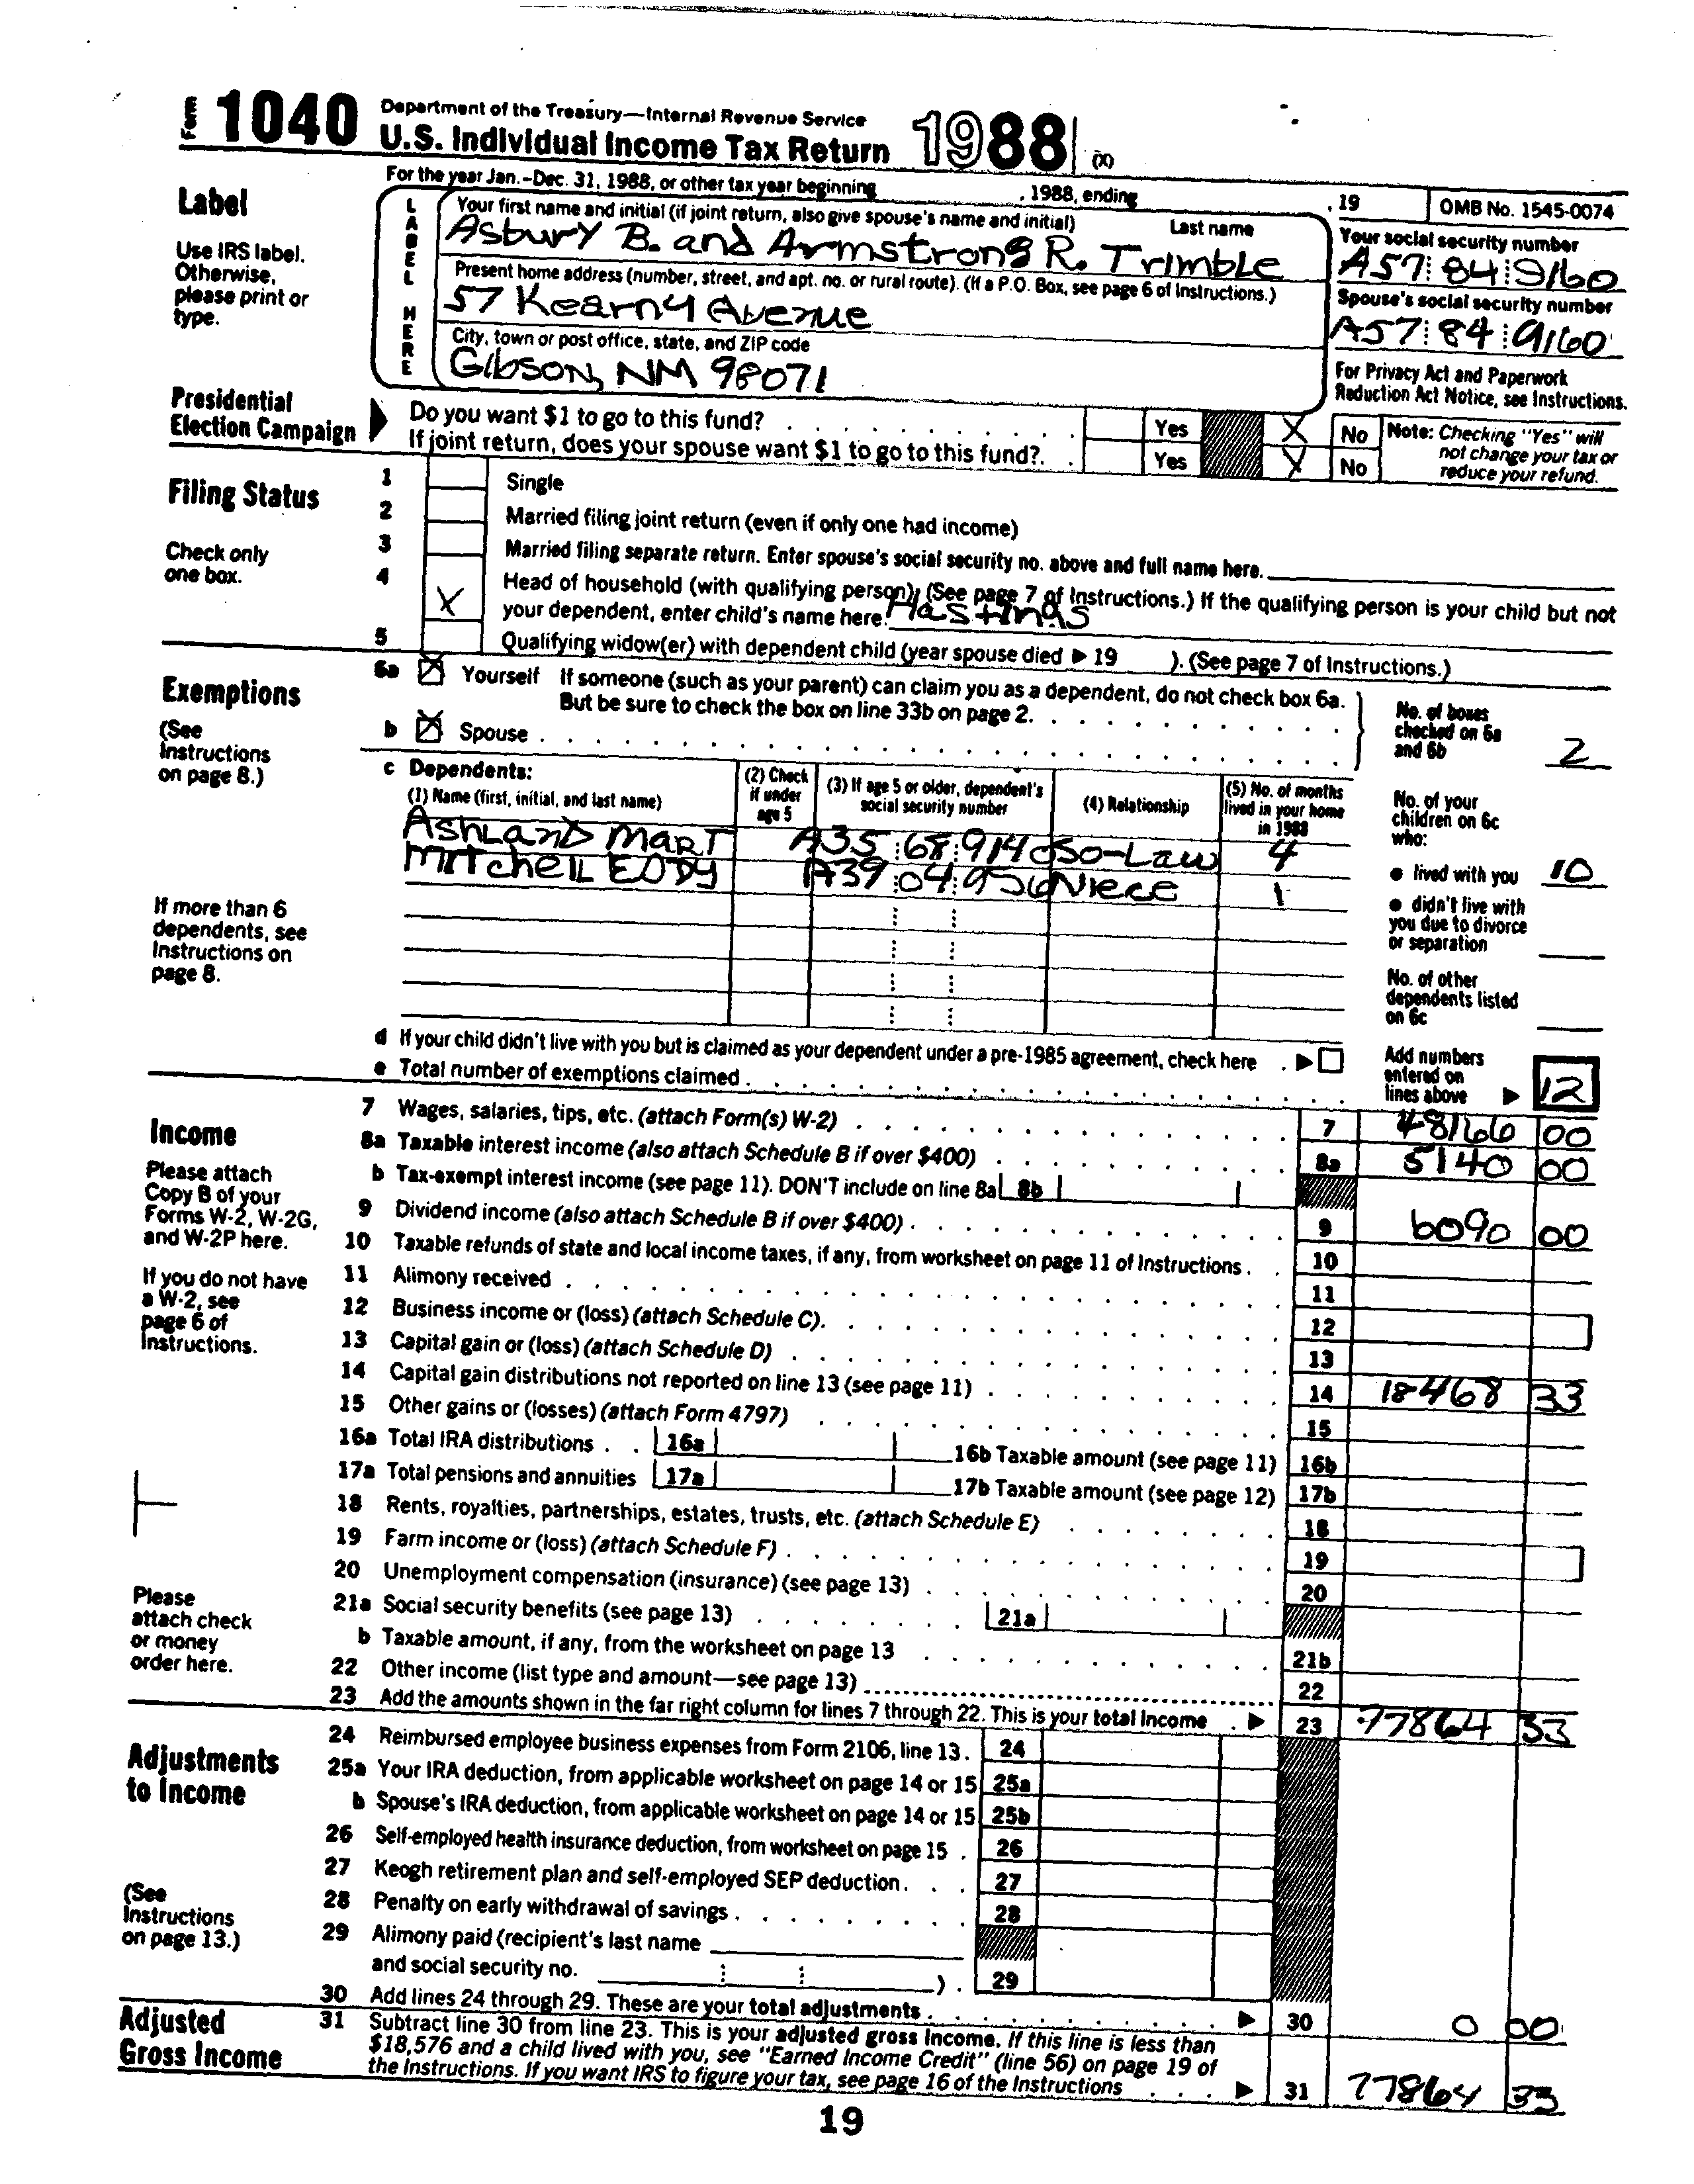 Form 1040 Department of the Treasury—Internal Revenue Service
U.S. Individual Income Tax Return 1988 (X)
For the year Jan.-Dec. 31, 1988, or other tax year beginning , 1988, ending , 19 OMB No. 1545-0074
Label
Use IRS label. Otherwise, please print or type.
LABEL HERE
Your first name and initial (if joint return, also give spouse's name and initial) Last name
Asbury B. and Armstrong R. Trimble
Your social security number
A57 84 9160
Present home address (number, street, and apt. no. or rural route). (If a P.O. Box, see page 6 of Instructions.)
57 Kearny Avenue
Spouse's social security number
A57 84 9160
City, town or post office, state, and ZIP code
Gibson, NM 98071
For Privacy Act and Paperwork Reduction Act Notice, see Instructions.
Presidential Election Campaign
Do you want $1 to go to this fund? Yes X No
If joint return, does your spouse want $1 to go to this fund?. Yes X No
Note: Checking "Yes" will not change your tax or reduce your refund.
Filing Status
Check only one box.
1 Single
2 Married filing joint return (even if only one had income)
3 Married filing separate return. Enter spouse's social security no. above and full name here.
4 X Head of household (with qualifying person). (See page 7 of Instructions.) If the qualifying person is your child but not
your dependent, enter child's name here. Hastings
5 Qualifying widow(er) with dependent child (year spouse died ▶ 19 ). (See page 7 of Instructions.)
Exemptions
(See Instructions on page 8.)
6a X Yourself If someone (such as your parent) can claim you as a dependent, do not check box 6a.
But be sure to check the box on line 33b on page 2.
b X Spouse
No. of boxes checked on 6a and 6b 2
c Dependents:
(1) Name (first, initial, and last name) (2) Check if under age 5 (3) If age 5 or older, dependent's social security number (4) Relationship (5) No. of months lived in your home in 1988
Ashland Mart A35 68 9140 So-Law 4
Mitchell Eddy A39 04 956 Niece 1
No. of your children on 6c who:
● lived with you 10
● didn't live with you due to divorce or separation
No. of other dependents listed on 6c
If more than 6 dependents, see Instructions on page 8.
d If your child didn't live with you but is claimed as your dependent under a pre-1985 agreement, check here ▶
e Total number of exemptions claimed
Add numbers entered on lines above ▶ 12
Income
Please attach Copy B of your Forms W-2, W-2G, and W-2P here.
If you do not have a W-2, see page 6 of Instructions.
7 Wages, salaries, tips, etc. (attach Form(s) W-2) 7 48166 00
8a Taxable interest income (also attach Schedule B if over $400) 8a 5140 00
b Tax-exempt interest income (see page 11). DON'T include on line 8a 8b
9 Dividend income (also attach Schedule B if over $400) 9 6090 00
10 Taxable refunds of state and local income taxes, if any, from worksheet on page 11 of Instructions 10
11 Alimony received 11
12 Business income or (loss) (attach Schedule C). 12
13 Capital gain or (loss) (attach Schedule D) 13
14 Capital gain distributions not reported on line 13 (see page 11) 14 18468 33
15 Other gains or (losses) (attach Form 4797) 15
16a Total IRA distributions 16a 16b Taxable amount (see page 11) 16b
17a Total pensions and annuities 17a 17b Taxable amount (see page 12) 17b
18 Rents, royalties, partnerships, estates, trusts, etc. (attach Schedule E) 18
19 Farm income or (loss) (attach Schedule F) 19
20 Unemployment compensation (insurance) (see page 13) 20
21a Social security benefits (see page 13) 21a
b Taxable amount, if any, from the worksheet on page 13 21b
22 Other income (list type and amount—see page 13) 22
23 Add the amounts shown in the far right column for lines 7 through 22. This is your total income ▶ 23 77864 33
Please attach check or money order here.
Adjustments to Income
(See Instructions on page 13.)
24 Reimbursed employee business expenses from Form 2106, line 13. 24
25a Your IRA deduction, from applicable worksheet on page 14 or 15 25a
b Spouse's IRA deduction, from applicable worksheet on page 14 or 15 25b
26 Self-employed health insurance deduction, from worksheet on page 15 26
27 Keogh retirement plan and self-employed SEP deduction 27
28 Penalty on early withdrawal of savings 28
29 Alimony paid (recipient's last name
and social security no. ) 29
30 Add lines 24 through 29. These are your total adjustments ▶ 30 0 00
Adjusted Gross Income
31 Subtract line 30 from line 23. This is your adjusted gross income. If this line is less than
$18,576 and a child lived with you, see "Earned Income Credit" (line 56) on page 19 of
the Instructions. If you want IRS to figure your tax, see page 16 of the Instructions ▶ 31 77864 33
19